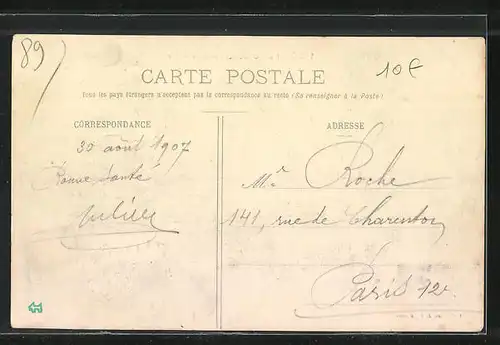 89
10€
CARTE POSTALE
Tous les pays étrangers n'acceptent pas la correspondance au recto (Se renseigner à la Poste)
CORRESPONDANCE
ADRESSE
30 août 1907
Bonne santé
Mr Roche
141, rue de Charenton
Paris 12e